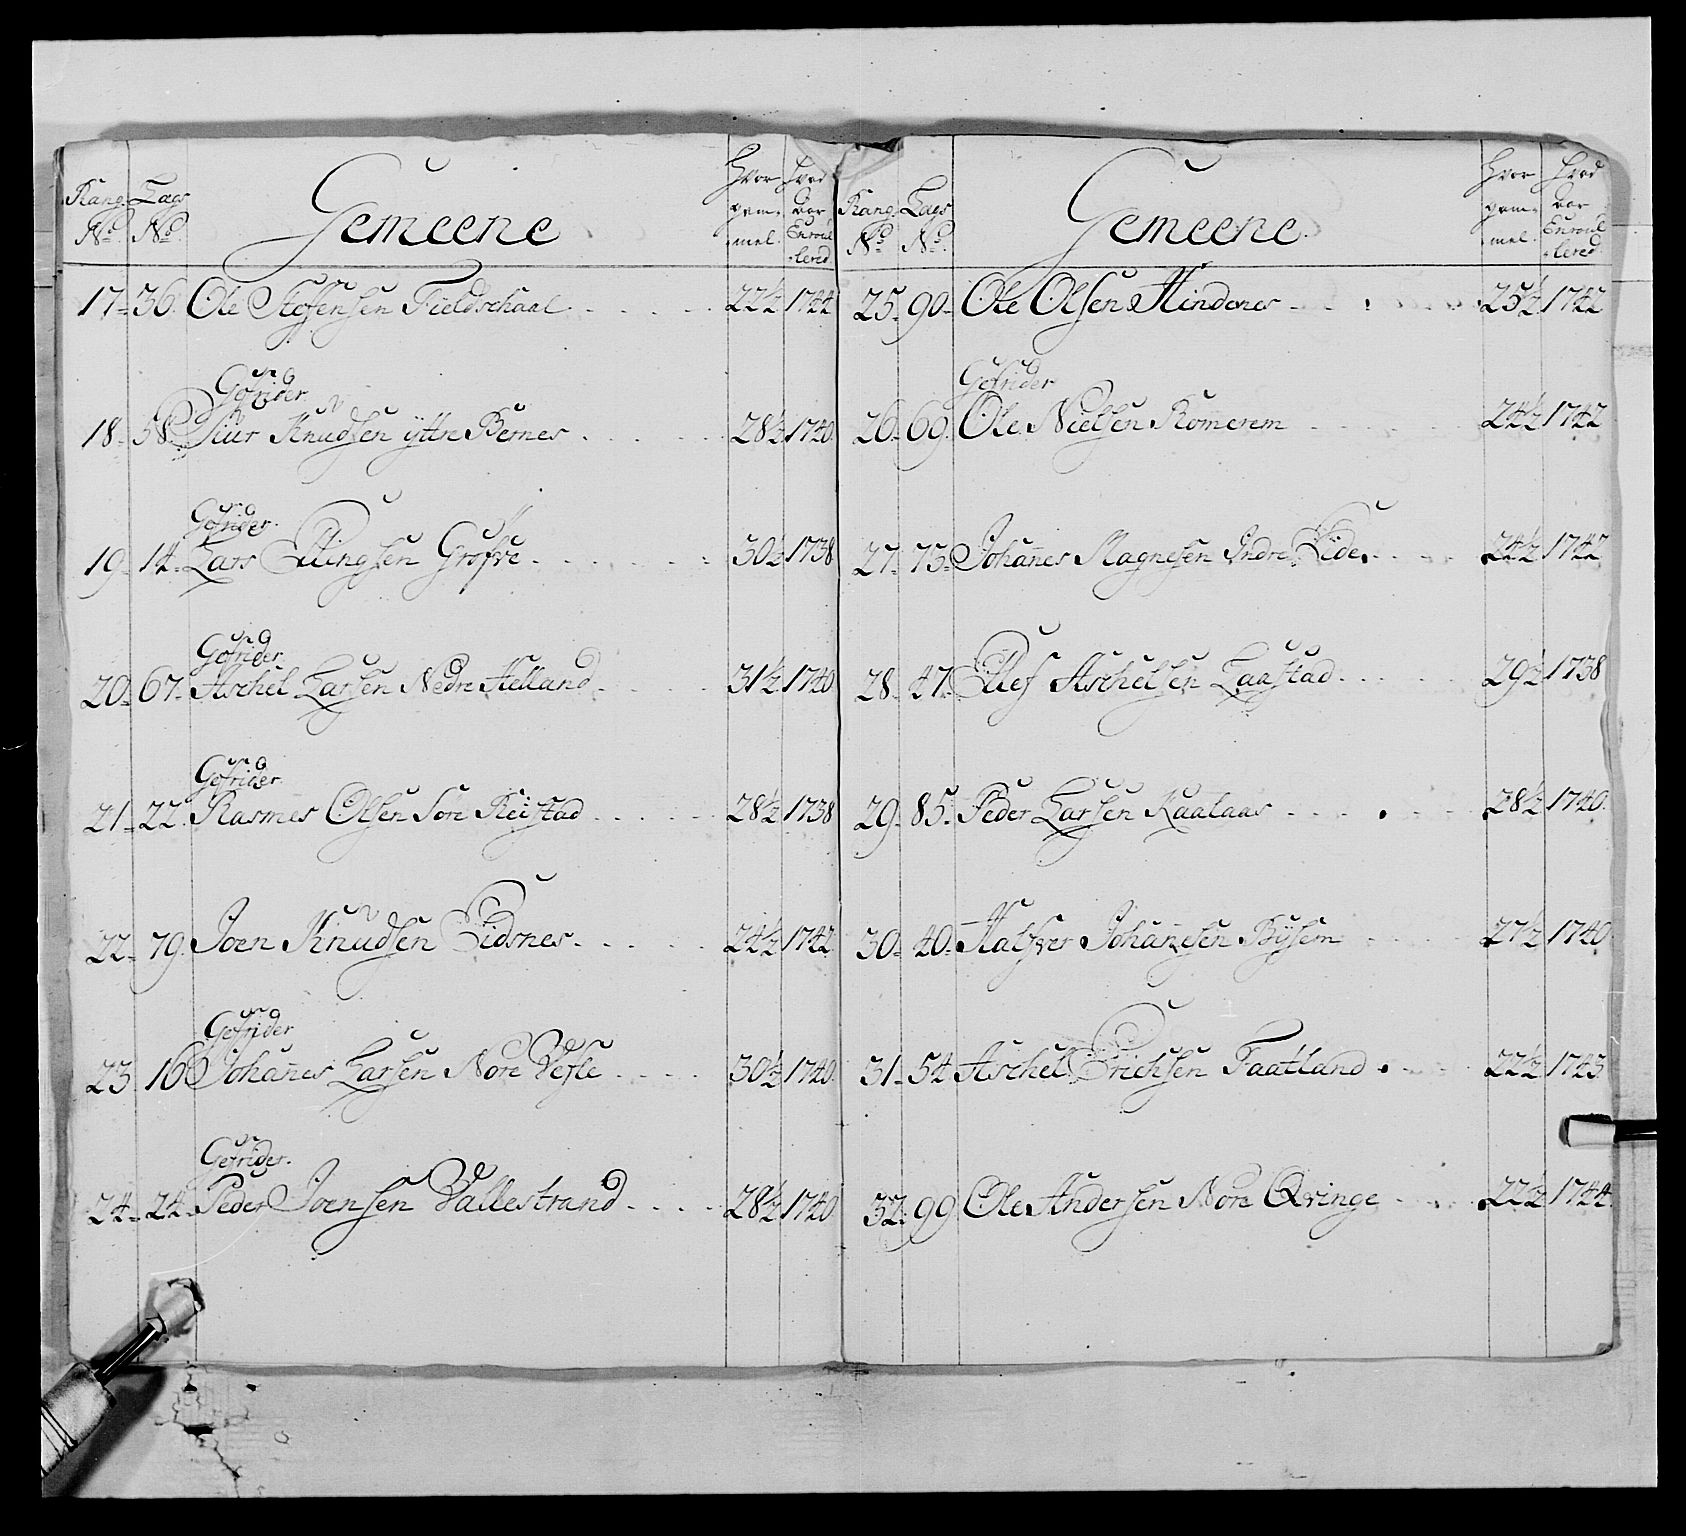 Rang Lags Gemeene Hvor Hvad
No. No. gam= Aar
mel. Enroul
lered.
17= 36. Ole Stefensen Field schaal 22½ 1744
Gefrider
18= 58. Siur Knudsen yttre Bernes 28½ 1740
Gefrider
19= 14. Lars Ellingsen Grøfve 30½ 1738
Gefrider
20= 67. Aschel Larsen Nedre Helland 31½ 1740
Gefrider
21= 22. Rasmes Olsen Søre Reistad 28½ 1738
22= 79. Joen Knudsen Eidsnes 24½ 1742
Gefrider
23 16 Johanes Larsen Nore Vefle 30½ 1740
Gefrider
24= 24. Peder Joensen Vallestrand 28½ 1740
Rang Lags Gemeene Hvor Hvad
No. No. gam= Aar
mel. Enroul
lered.
25= 90= Ole Olsen Hindenes 25½ 1742
Gefrider
26= 69. Ole Nielsen Romerem 24½ 1742
27= 73= Johanes Magnesen Indre Eide 24½ 1742
28= 47. Ellef Aschelsen Laastad 29½ 1738
29= 85. Peder Larsen Kaalaas 28½ 1740
30= 40= Halfver Johanesen Bysem 27½ 1740
31= 54 Aschel Erichsen Taatland 22½ 1743
32= 99 Ole Andersen Nore Qvinge 22½ 1744